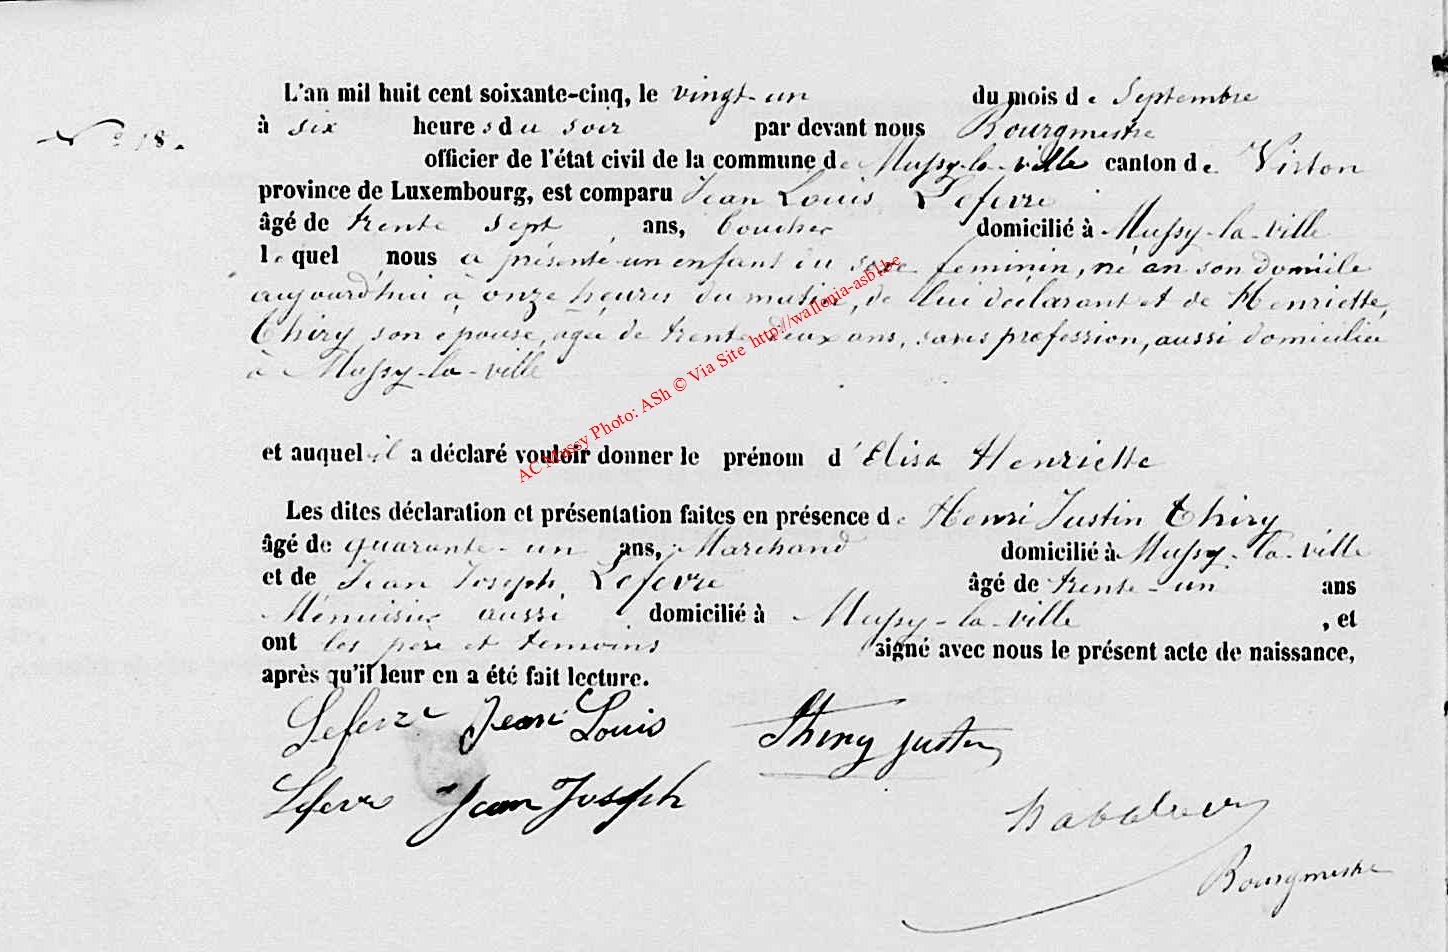 L'an mil huit cent soixante-cinq, le vingt-un du mois de Septembre
N° 18.
à six heures du soir par devant nous Bourgmestre
officier de l'état civil de la commune de Mussy-la-ville canton de Virton
province de Luxembourg, est comparu Jean Louis Lefevre
âgé de trente sept ans, boucher domicilié à Mussy-la-ville
lequel nous a présenté un enfant du sexe feminin, né en son domicile
aujourd'hui à onze heures du matin, de lui déclarant et de Henriette
Thiry son épouse, agée de trente deux ans, sans profession, aussi domiciliée
à Mussy-la-ville
et auquel il a déclaré vouloir donner le prénom d'Elisa Henriette
Les dites déclaration et présentation faites en présence de Henri Justin Thiry
âgé de quarante-un ans, Marchand domicilié à Mussy-la-ville
et de Jean Joseph Lefevre âgé de trente-un ans
Menuisier aussi domicilié à Mussy-la-ville, et
ont les père et temoins signé avec nous le présent acte de naissance,
après qu'il leur en a été fait lecture.
Lefevre Jean Louis Thiry Justin
Lefevre Jean Joseph
Bourgmestre
AC Mussy Photo: ASh © Via Site http://wallonia-asbl.be